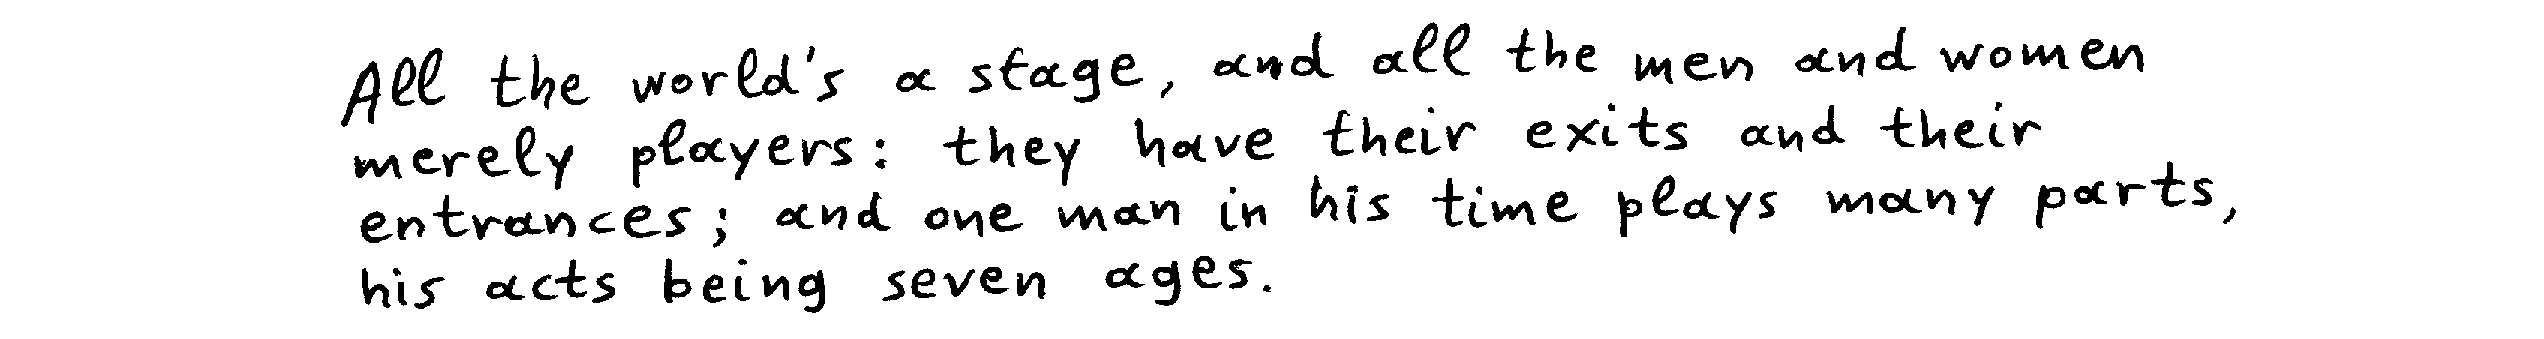 All the world's a stage, and all the men and women
merely players: they have their exits and their
entrances; and one man in his time plays many parts,
his acts being seven ages.